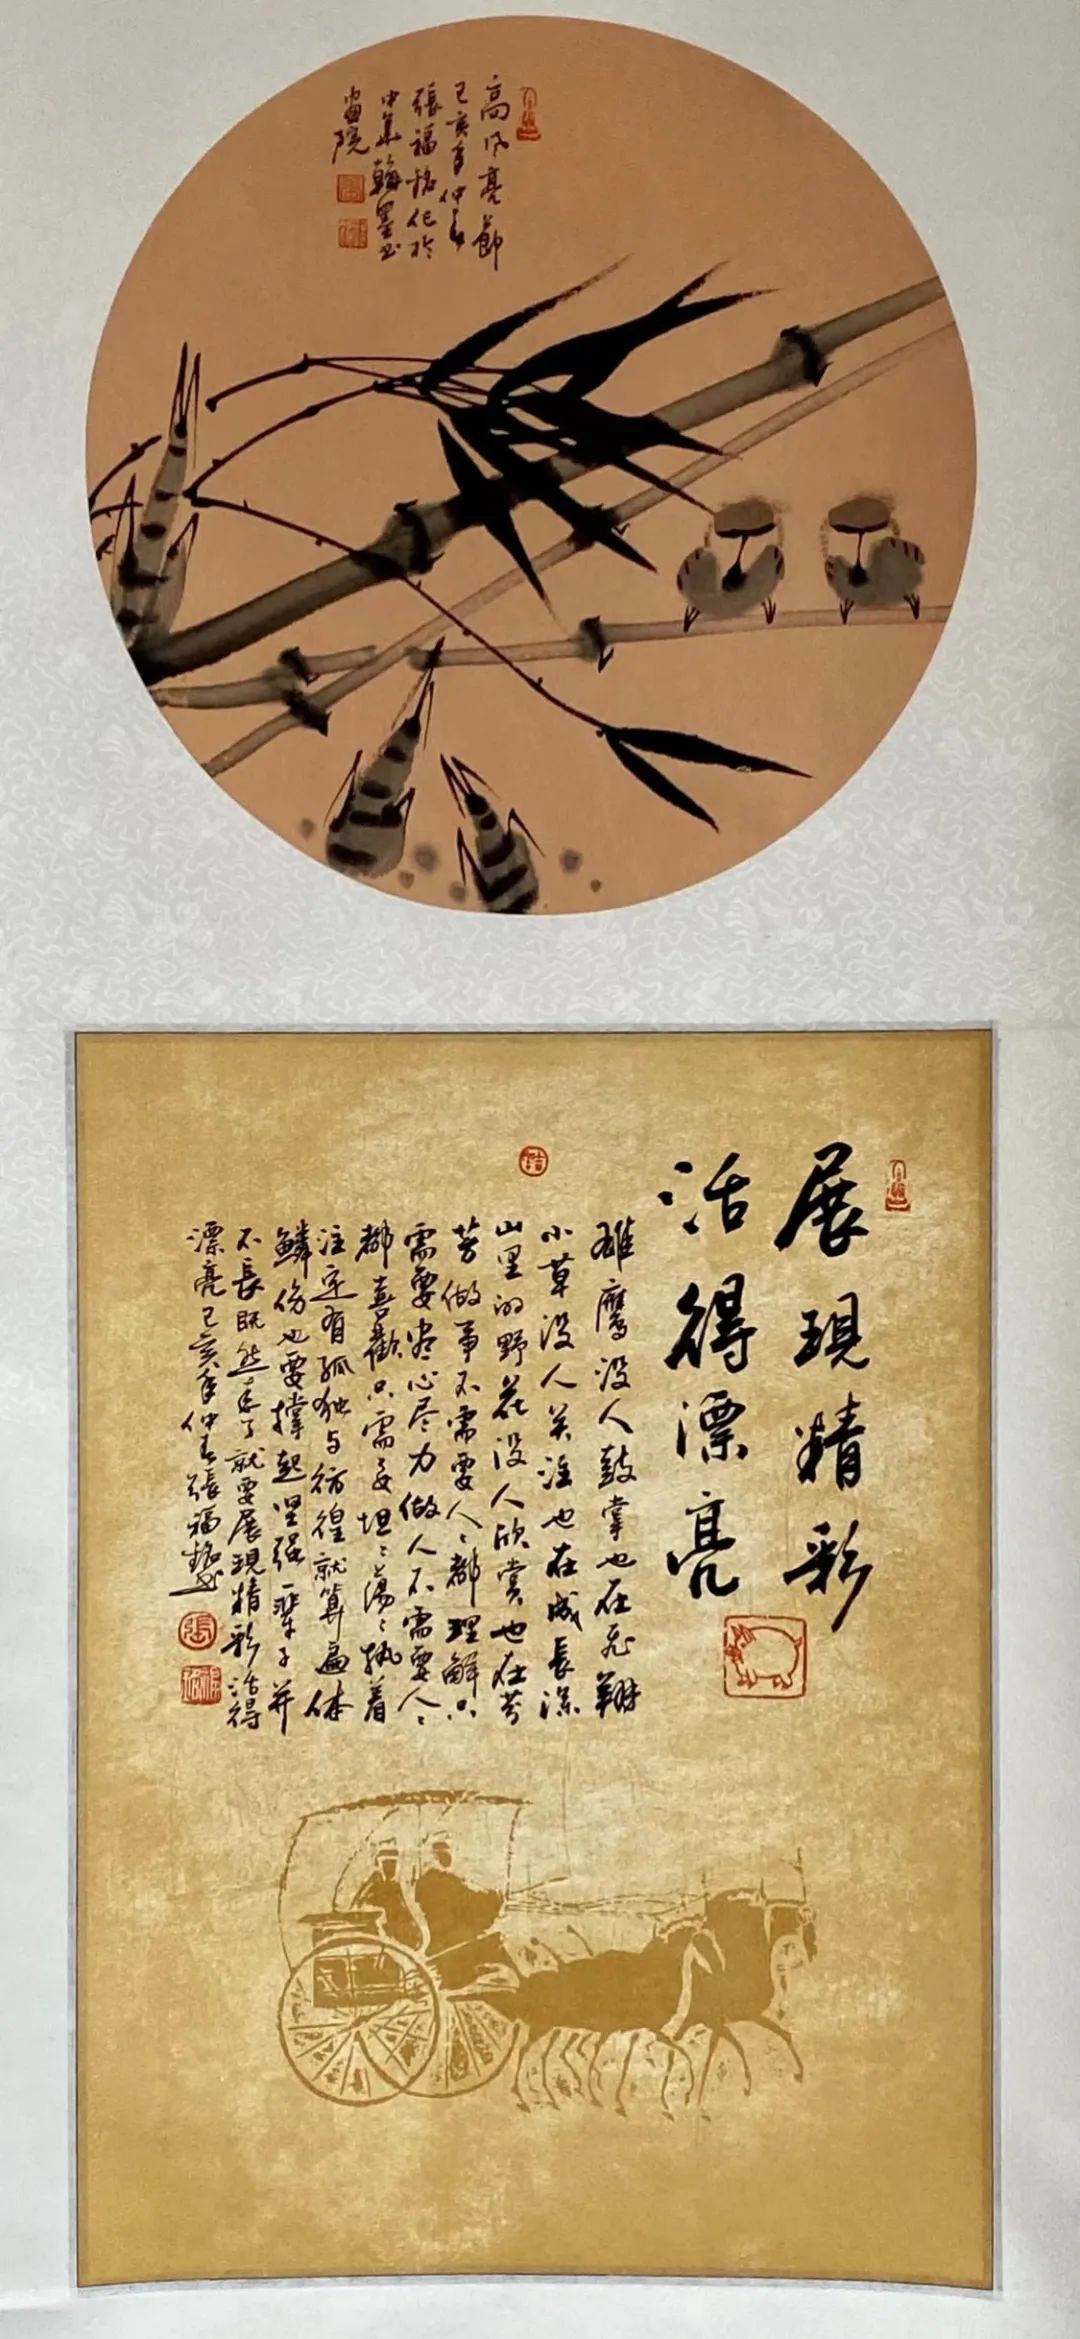 高风亮節
己亥年仲春
張福銘作於
中集翰墨书
画院
展現精彩
活得漂亮
雄鹰没人鼓掌也在飞翔
小草没人关注也在成長深
山里的野花没人欣赏也在芬
芳做事不需要人〻都理解只
需要尽心尽力做人不需要人〻
都喜歡只需要坦〻蕩〻执着
注定有孤独与彷徨就算遍体
鳞伤也要撑起坚强一辈子并
不長既然来了就要展現精彩活得
漂亮己亥年仲春張福銘书
張